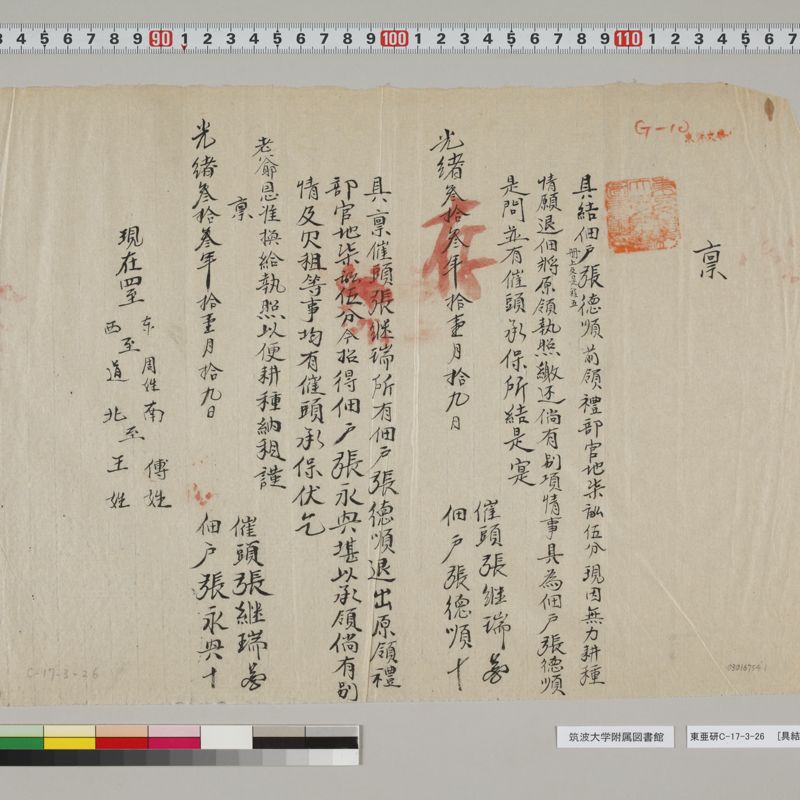 3 4 5 6 7 8 9 90 1 2 3 4 5 6 7 8 9 100 1 2 3 4 5 6 7 8 9 110 1 2 3 4 5 6 7
G-10
稟
具結佃戶張德順前領禮部官地柒畝伍分現因無力耕種
情願退佃將原領執照繳还倘有别項情事具為佃戶張德順
是問並有催頭承保所結是寔
催頭張継瑞
佃戶張德順十
光緒叁拾叁年拾壹月拾九日
存
具稟催頭張継瑞所有佃戶張德順退出原領禮
部官地柒畝伍分今招得佃戶張永興堪以承領倘有别
情及欠租等事均有催頭承保伏乞
老爺恩准換給執照以便耕種納租謹
稟
催頭張継瑞
佃戶張永興十
光緒叁拾叁年拾壹月拾九日
現在四至
东至周姓南至傅姓
西至道北至王姓
C-17-3-26
筑波大学附属図書館
東亜研C-17-3-26 [具結